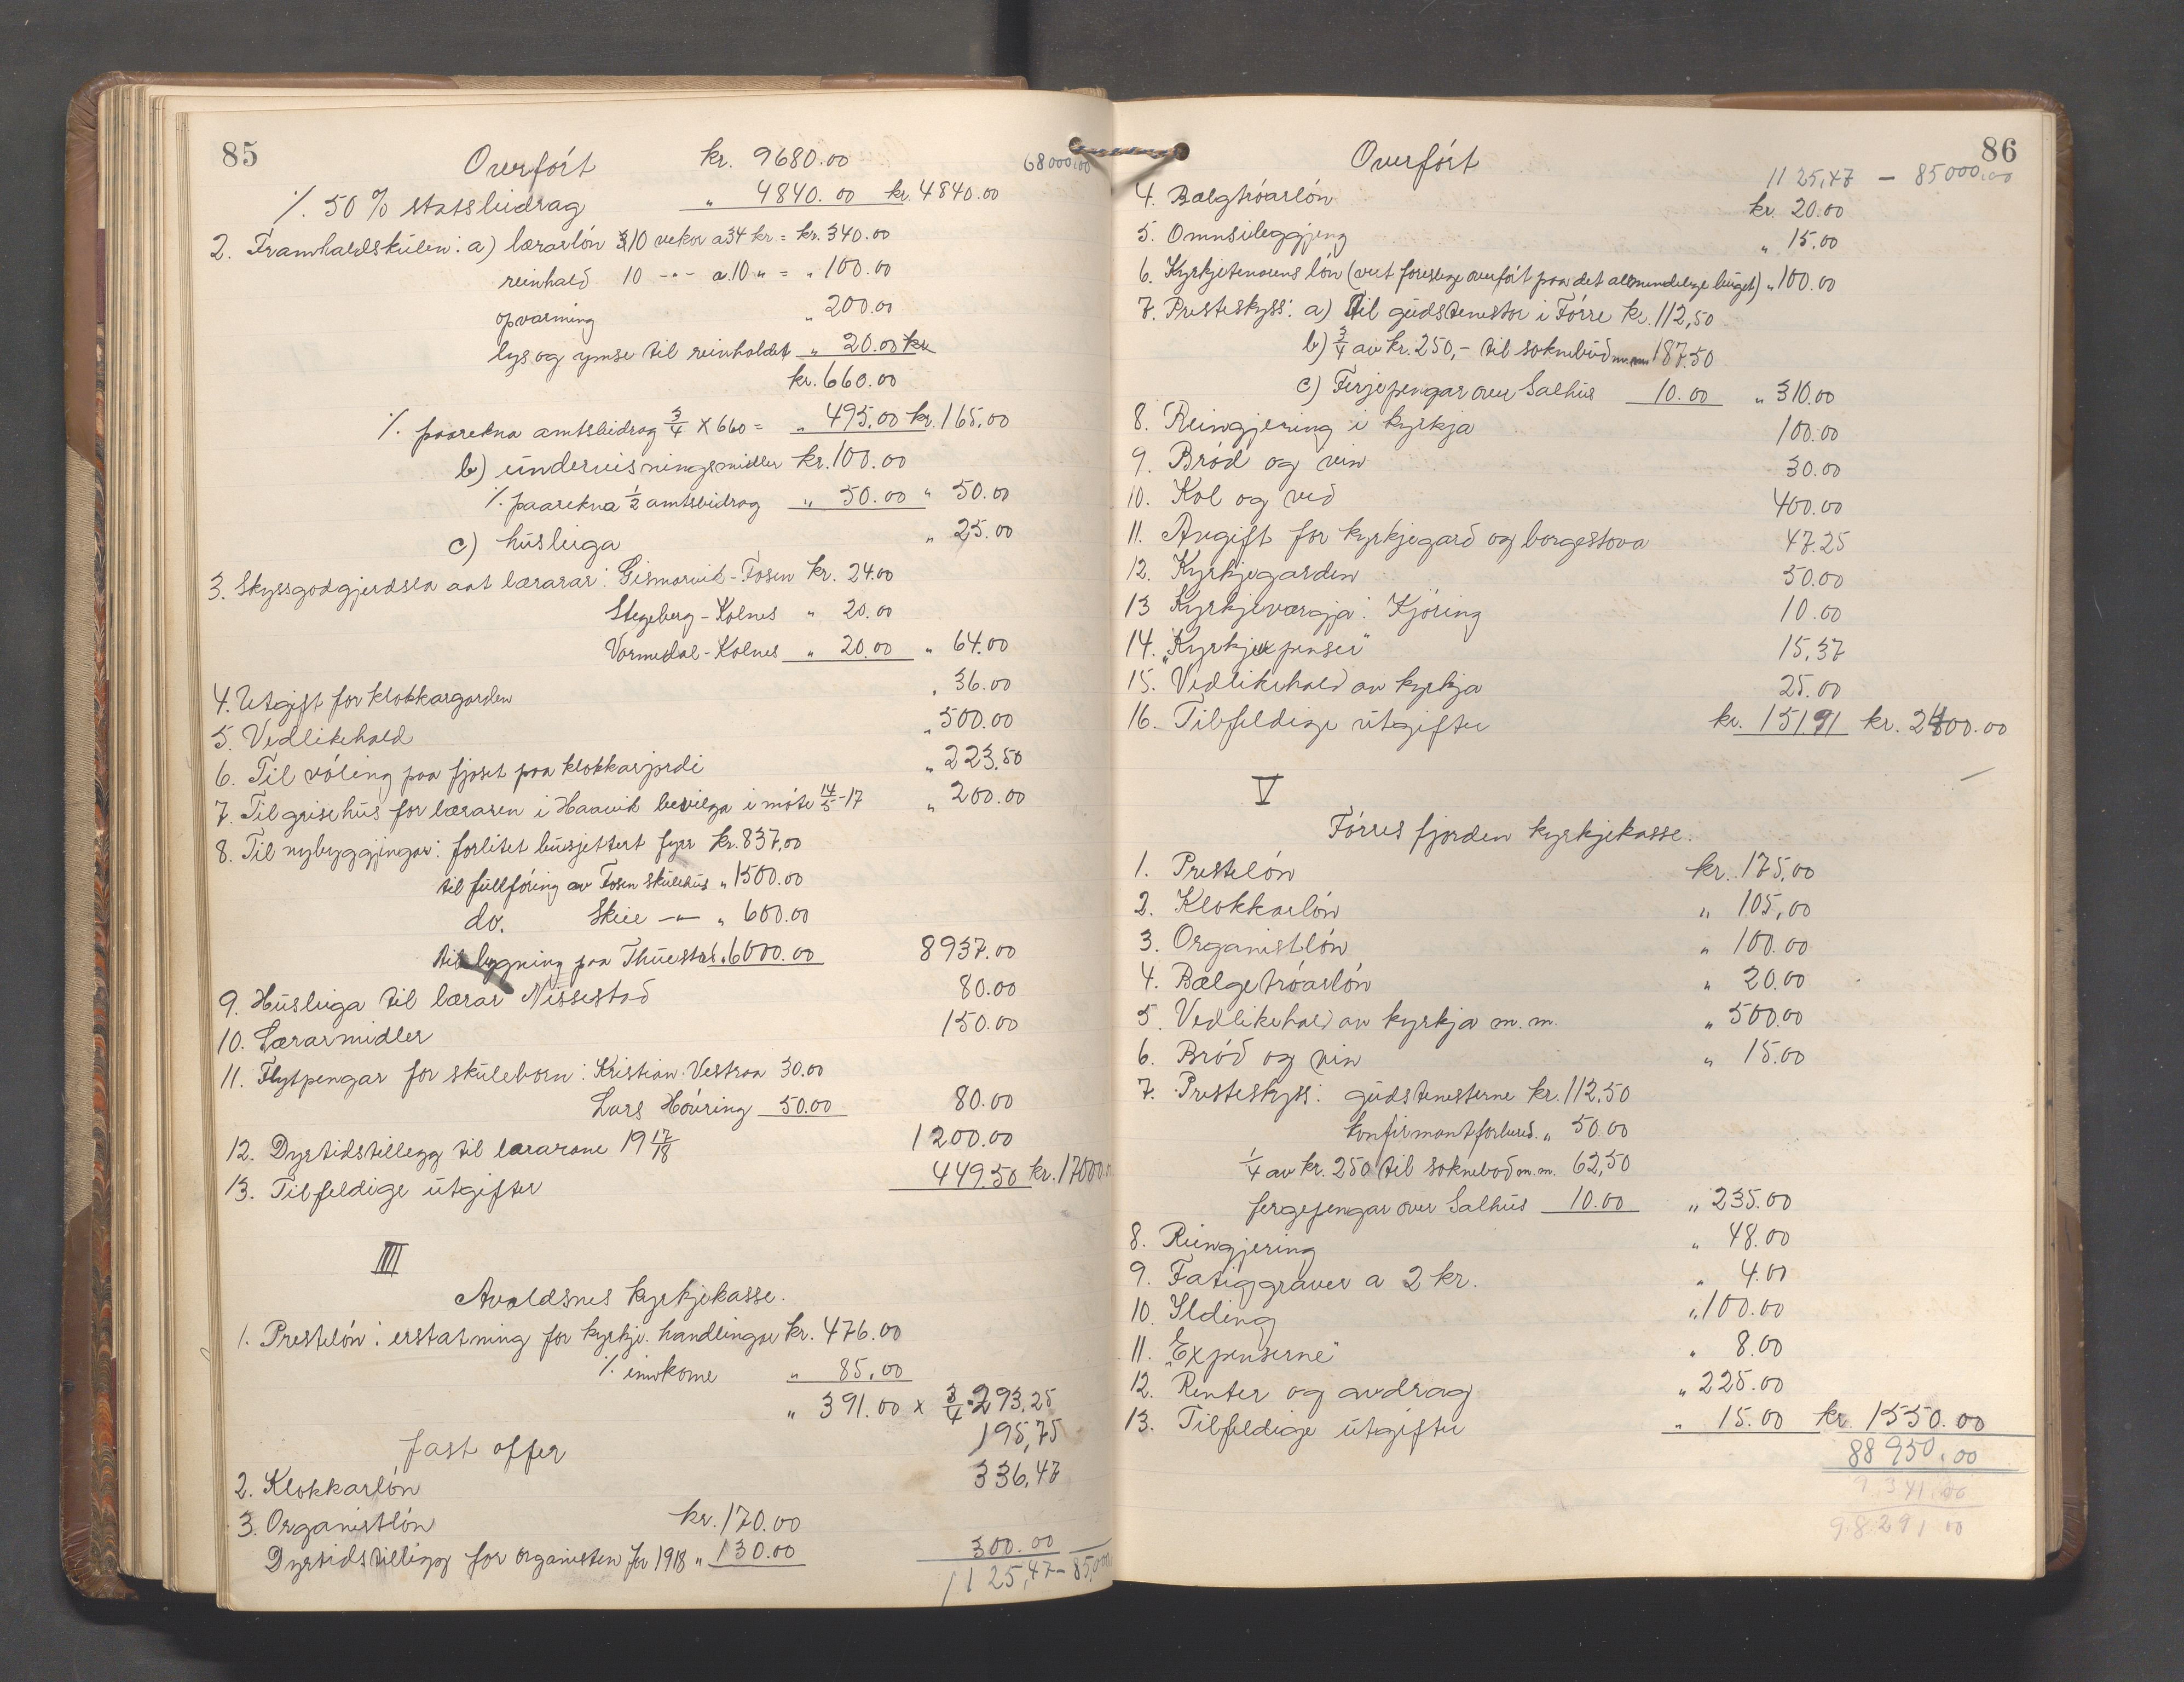 85
Overført kr. 9680.00 68000,00
⁒ 50 % statsbidrag " 4840.00 kr. 4840.00
2. Framhaldskulen: a) lærarløn 10 vekor a 34 kr = kr. 340.00
reinhald 10 -"- a 10 " = " 100.00
opvarming " 200.00
lys og ymse til reinholdet " 20.00 kr
kr. 660.00
⁒ paarekna amtsbidrag 3/4 X 660 = " 495.00 kr. 165.00
b) undervisningsmidler kr. 100.00
⁒ paarekna 1/2 amtsbidrag " 50.00 " 50.00
c) husleiga " 25.00
3. Skyssgodgjerdsla aat lærarar: Gismarvik - Fosen kr. 24.00
Stegeberg - Kolnes " 20.00
Vormedal - Kolnes " 20.00 " 64.00
4. Utgift for klokkargarden " 36.00
5. Vedlikehald " 500.00
6. Til vøling paa fjoset paa klokkarjordi " 223.50
7. Til grisehus for læraren i Haavik bevilga i møte 14/5-17 " 200.00
8. Til nybyggjingar: forlitet busjettert fyrr kr. 837,00
til fullføring av Fosen skulehus " 1500.00
do. Skeie -"- " 600.00
til bygning paa Thuestad " 6000.00 8937.00
9. Husleiga til lærar Nissestad 80.00
10. Lærarmidler 150.00
11. Flytpengar for skuleborn: Kristian Vestraa 30.00
Lars Høvring 50.00 80.00
12. Dyrtidstillegg til lærarane 19 17/18 1200.00
13. Tilfeldige utgifter 449.50 kr. 17000.
IIII
Avaldsnes kyrkjekasse.
1. Presteløn: erstatning for kyrkje. handlingar kr. 476.00
⁒ innkome " 85.00
" 391.00 x 3/4 = 293,25
fast offer 195,75
2. Klokkarløn 336,47
3. Organistløn kr. 170.00
Dyrtidstillegg for organisten for 1918 " 130.00 300.00
1125,47 - 85,000
86
Overført 1125,47 - 85000,00
4. Bælgtrøarløn kr. 20.00
5. Omnsileggjing " 15.00
6. Kyrkjetenarens løn (vert foreslege overført paa det almindelege buget) " 100.00
7. Presteskyss: a) Til gudstenestor i Førre kr. 112,50
b) 3/4 av kr. 250,- til soknebud m.m. 187.50
c) Ferjepengar over Salhus 10.00 " 310.00
8. Reingjering i kyrkja 100.00
9. Brød og vin 30.00
10. Kol og ved 400.00
11. Avgift for kyrkjegard og borgestova 47.25
12. Kyrkjegarden 50.00
13 Kyrkjeværgja: Kjøring 10.00
14. "Kyrkjeexpenser" 15,37
15. Vedlikehald av kyrkja 25.00
16. Tilfeldige utgifter kr. 151,91 kr. 2400.00
V
Førresfjorden kyrkjekasse.
1. Presteløn kr. 175,00
2. Klokkarløn " 105,00
3. Organistløn " 100.00
4. Bælgetrøarløn " 20.00
5. Vedlikehald av kyrkja m.m. " 500.00
6. Brød og vin " 15.00
7. Presteskyss: gudstenesterne kr. 112,50
konfirmantforbured. " 50.00
1/4 av kr. 250 til soknebod m.m. 62,50
fergepengar over Salhus 10.00 " 235.00
8. Reingjering " 48.00
9. Fatiggraver a 2 kr. " 4.00
10. Ilding " 100.00
11. "Expenserne" " 8.00
12. Renter og avdrag " 225.00
13. Tilfeldige utgifter " 15.00 kr. 1550.00
88950,00
9341,00
98291 00